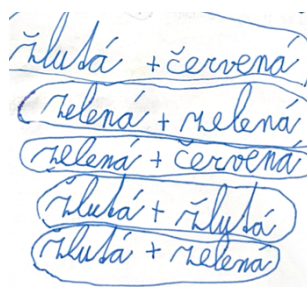 žlutá + červená
zelená + zelená
zelená + červená
žlutá + žlutá
žlutá + zelená